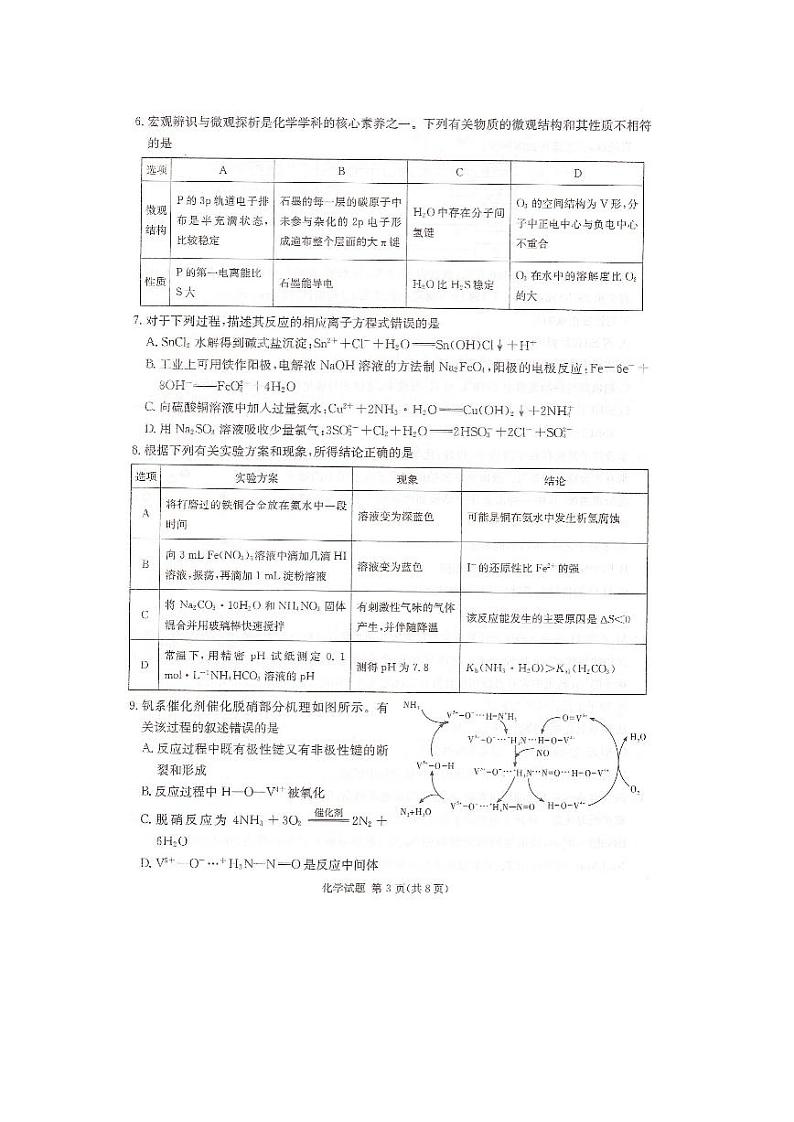 6. 宏观辨识与微观探析是化学学科的核心素养之一。下列有关物质的微观结构和其性质不相符
的是
选项 A B C D
微观结构
P 的 3p 轨道电子排
布是半充满状态,
比较稳定
石墨的每一层的碳原子中
未参与杂化的 2p 电子形
成遍布整个层面的大 π 键
H₂O 中存在分子间
氢键
O₃ 的空间结构为 V 形,分
子中正电中心与负电中心
不重合
性质
P 的第一电离能比
S 大
石墨能导电
H₂O 比 H₂S 稳定
O₃ 在水中的溶解度比 O₂
的大
7. 对于下列过程,描述其反应的相应离子方程式错误的是
A. SnCl₂ 水解得到碱式盐沉淀:Sn²⁺+Cl⁻+H₂O══Sn(OH)Cl↓+H⁺
B. 工业上可用铁作阳极,电解浓 NaOH 溶液的方法制 Na₂FeO₄,阳极的电极反应:Fe−6e⁻+
8OH⁻══FeO₄²⁻+4H₂O
C. 向硫酸铜溶液中加入过量氨水,Cu²⁺+2NH₃·H₂O══Cu(OH)₂↓+2NH₄⁺
D. 用 Na₂SO₃ 溶液吸收少量氯气:3SO₃²⁻+Cl₂+H₂O══2HSO₃⁻+2Cl⁻+SO₄²⁻
8. 根据下列有关实验方案和现象,所得结论正确的是
选项 实验方案 现象 结论
A
将打磨过的铁铜合金放在氨水中一段
时间
溶液变为深蓝色
可能是铜在氨水中发生析氢腐蚀
B
向 3 mL Fe(NO₃)₃溶液中滴加几滴 HI
溶液,振荡,再滴加 1 mL 淀粉溶液
溶液变为蓝色
I⁻的还原性比 Fe²⁺的强
C
将 Na₂CO₃·10H₂O 和 NH₄NO₃ 固体
混合并用玻璃棒快速搅拌
有刺激性气味的气体
产生,并伴随降温
该反应能发生的主要原因是 ΔS<0
D
常温下,用精密 pH 试纸测定 0.1
mol·L⁻¹NH₄HCO₃ 溶液的 pH
测得 pH 为 7.8
K_b(NH₃·H₂O)>K_a1(H₂CO₃)
9. 钒系催化剂催化脱硝部分机理如图所示。有
关该过程的叙述错误的是
A. 反应过程中既有极性键又有非极性键的断
裂和形成
B. 反应过程中 H—O—V⁴⁺被氧化
C. 脱硝反应为 4NH₃+3O₂ ══催化剂══ 2N₂+
6H₂O
D. V⁵⁺—O⁻…⁺H₃N—N═O 是反应中间体
NH₃
V⁵⁺-O⁻…H-N⁺H₃
O=V⁵⁺
V⁵⁺-O⁻…⁺H₃N…H-O-V⁴⁺
NO
V⁵⁺-O⁻…⁺H₃N…N=O…H-O-V⁴⁺
V⁵⁺-O⁻…⁺H₃N—N=O
H-O-V⁴⁺
V⁵⁺-O-H
N₂+H₂O
H₂O
O₂
化学试题 第 3 页(共 8 页)